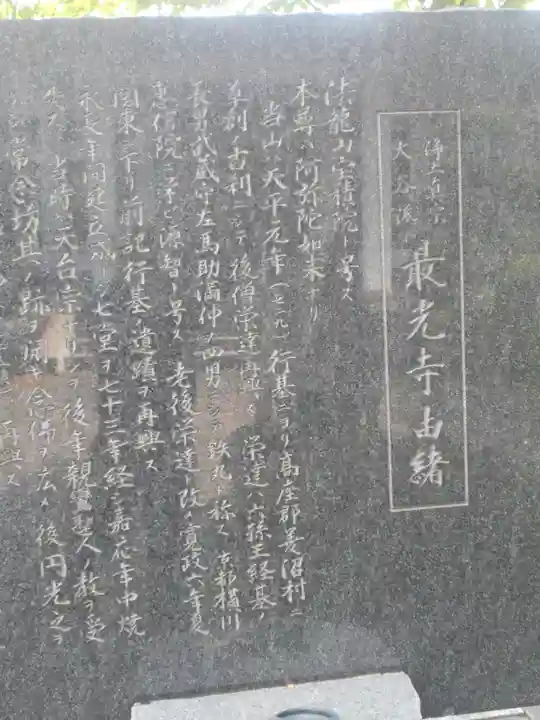 浄土真宗
大谷派
最光寺由緒
法龍山宝積院ト号ス
本尊ハ阿弥陀如来ナリ
当山ハ天平元年(七二九)行基ニヨリ高座郡菱沼村ニ
草創ノ古刹ニシテ後僧栄達再興ス 栄達ハ六孫王経基ノ
長男武蔵守左馬助満仲ノ四男ニシテ鉄丸ト称ス 京都横川
恵信院ニ学ビ源智ト号ス 老後栄達ト改メ寛政六年夏
関東ニ下リ前記行基ノ遺蹟ヲ再興ス
永長年間建立成リシ七堂ヲ七十三年経シ嘉応年中焼
失ス 当時ハ天台宗ナリシヲ後年親鸞聖人ノ教ヲ受
常念坊其ノ跡ヲ開キ念佛ヲ広メ後円光之ヲ
再興ス